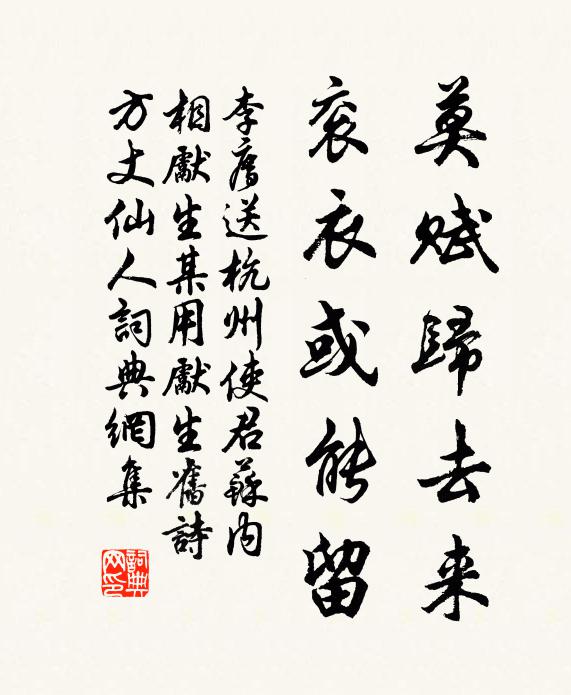 莫賦歸去来
衮衣或能留
李廌送杭州使君蘇内
相獻生某用獻生舊詩
方丈仙人詞典網集
詞典網印